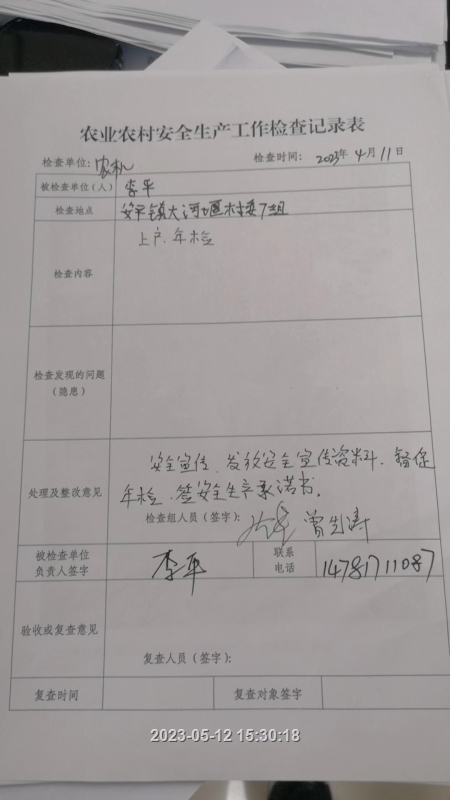 农业农村安全生产工作检查记录表
检查单位: 农机 检查时间: 2023年 4月 11日
被检查单位(人) 李平
检查地点 安平镇大河堰村委7组
检查内容 上户、年检
检查发现的问题
(隐患)
处理及整改意见 安全宣传、发放安全宣传资料、督促
年检、签安全生产承诺书。
检查组人员(签字):
被检查单位
负责人签字 李平 联系
电话 14781711087
验收或复查意见
复查人员(签字):
复查时间 复查对象签字
2023-05-12 15:30:18